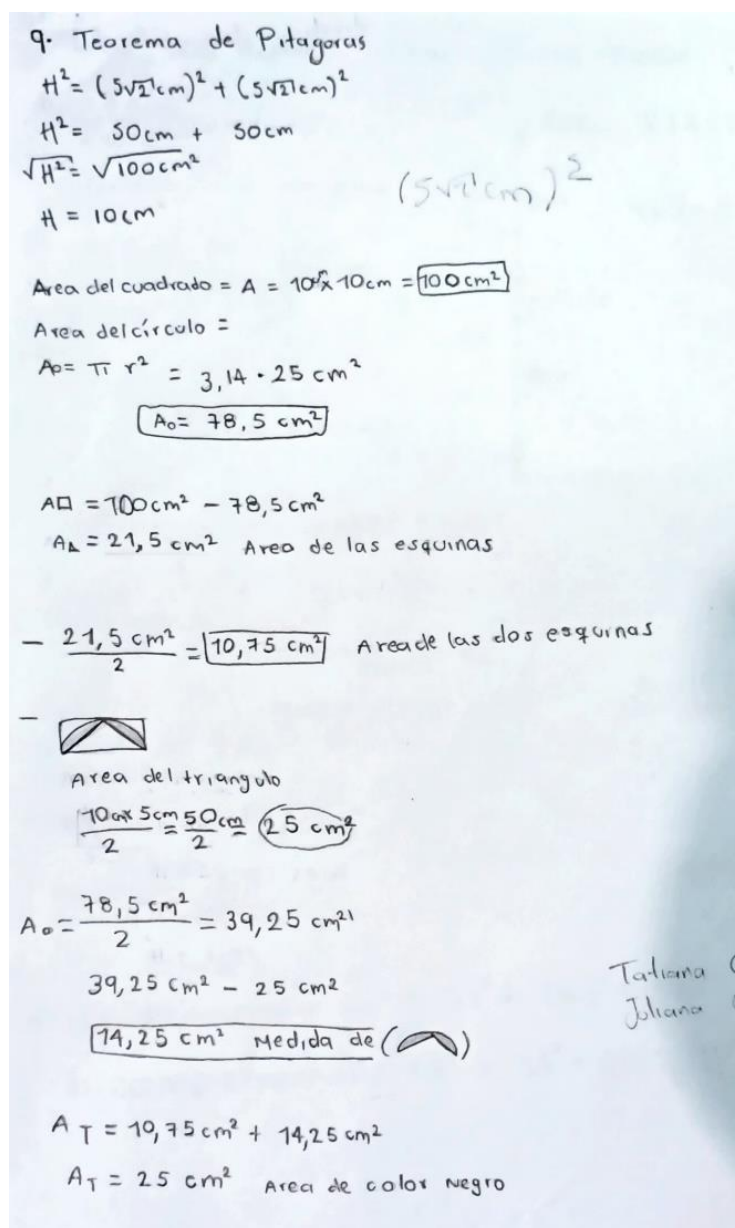 9. Teorema de Pitagoras
H² = (5√2 cm)² + (5√2 cm)²
H² = 50cm + 50cm
√H² = √100cm²
(5√2 cm)²
H = 10cm
Area del cuadrado = A = 10cm x 10cm = 100 cm²
Area del círculo =
Ao = π r² = 3,14 · 25 cm²
Ao = 78,5 cm²
A□ = 100cm² - 78,5cm²
A△ = 21,5 cm² Area de las esquinas
- 21,5 cm² / 2 = 10,75 cm² Area de las dos esquinas
-
Area del triangulo
10cm x 5cm / 2 = 50cm / 2 = 25 cm²
Ao = 78,5 cm² / 2 = 39,25 cm²
39,25 cm² - 25 cm²
Tatiana
Juliana
14,25 cm² Medida de ( )
A T = 10,75cm² + 14,25 cm²
A T = 25 cm² Area de color Negro